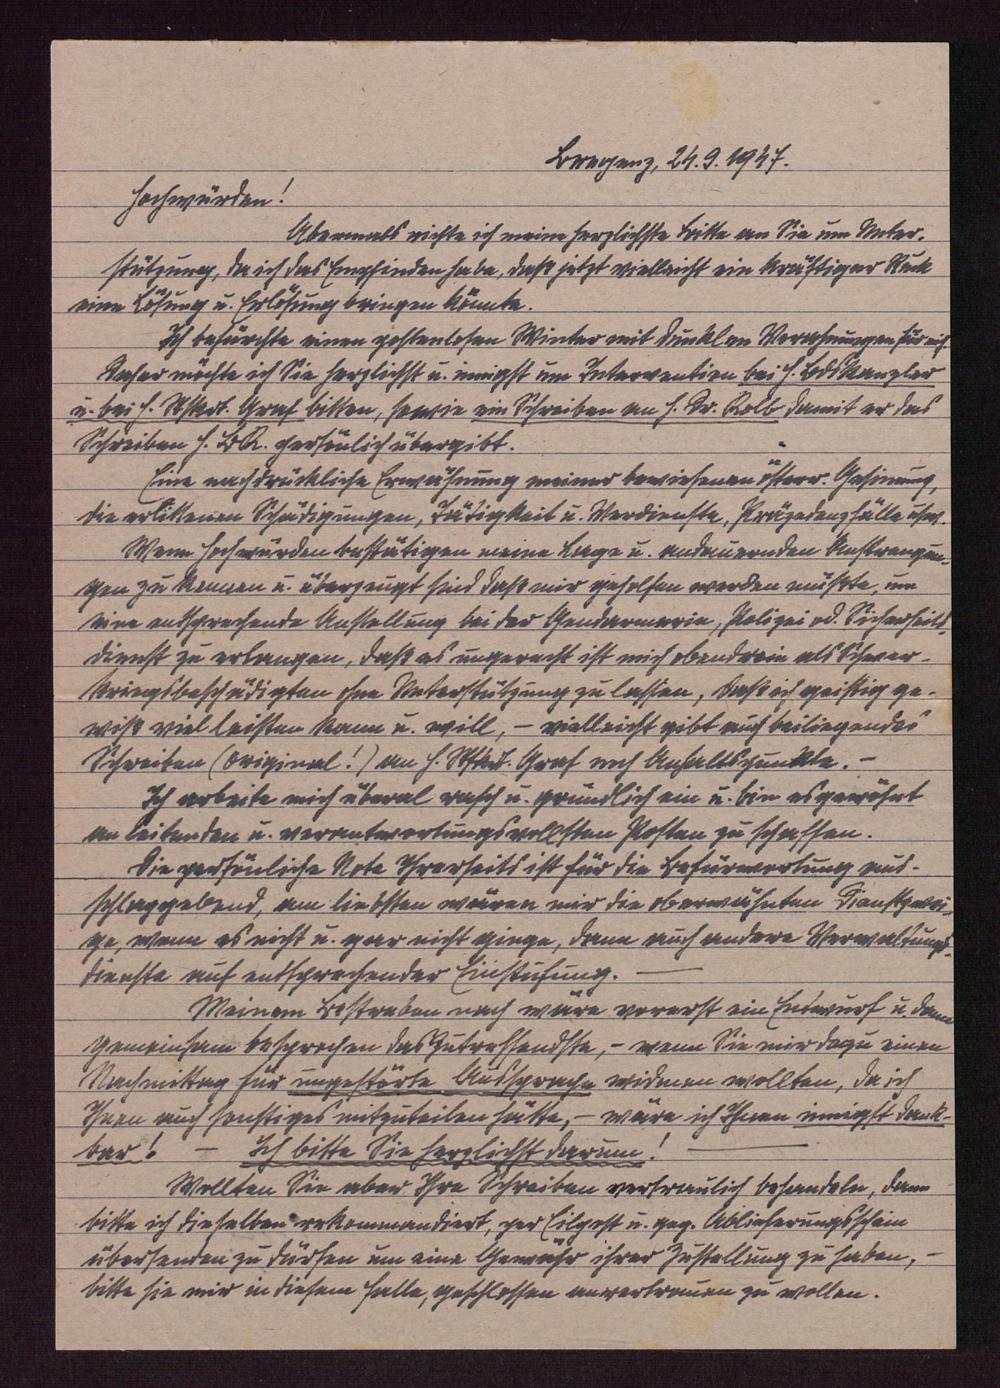 Bregenz, 24.9.1947.
Hochwürden!
Abermals richte ich meine herzlichste Bitte an Sie um Unter-
stützung, da ich das Empfinden habe, daß jetzt vielleicht ein kräftiger Ruck
eine Lösung u. Erlösung bringen könnte.
Ich befürchte einen postenlosen Winter mit dunklen für mich.
Daher möchte ich Sie herzlichst u. innigst um Intervention bei H. Bdskanzler
u. bei H. Stsekr. Graf bitten, sowie ein Schreiben an H. Dr. Kolb damit er das
Schreiben H. BK. persönlich übergibt.
Eine nachdrückliche Erwähnung meiner bewiesenen österr. Gesinnung,
die erlittenen Schädigungen, Tätigkeit u. Verdienste, Präzedenzfälle usw.
Wenn Hochwürden bestätigen meine Lage u. andauernden Anstrengun-
gen zu kennen u. überzeugt sind daß mir geholfen werden müßte, um
eine entsprechende Anstellung bei der Gendarmerie, Polizei od. Sicherheits-
dienst zu erlangen, daß es ungerecht ist mich obendrein als Schwer-
kriegsbeschädigten ohne Unterstützung zu lassen, daß ich geistig ge-
wiß viel leisten kann u. will, – vielleicht gibt auch beiliegendes
Schreiben (Original!) an H. Stsekr. Graf noch Anhaltspunkte. –
Ich arbeite mich überal rasch u. gründlich ein u. bin es gewöhnt
an leitenden u. verantwortungsvollsten Posten zu schaffen.
Die persönliche Note Ihrerseits ist für die Befürwortung aus-
schlaggebend, am liebsten wären mir die oberwähnten Dienstzwei-
ge, wenn es nicht u. gar nicht ginge, dann auch andere Verwaltungs-
dienste auf entsprechender Einstufung. —
Meinem Bestreben nach wäre vorerst ein Entwurf u. dann
gemeinsam besprochen das Zutreffendste, – wenn Sie mir dazu einen
Nachmittag für ungestörte Aussprache widmen wollten, da ich
Ihnen auch sonstiges mitzuteilen hätte, – wäre ich Ihnen innigst dank-
bar! – Ich bitte Sie herzlichst darum! —
Wollten Sie aber Ihre Schreiben vertraulich behandeln, dann
bitte ich dieselben rekommandiert, per Eilpost u. geg. Ablieferungsschein
übersenden zu dürfen um eine Gewähr ihrer Zustellung zu haben, –
bitte sie mir in diesem Falle, geschlossen anvertrauen zu wollen.